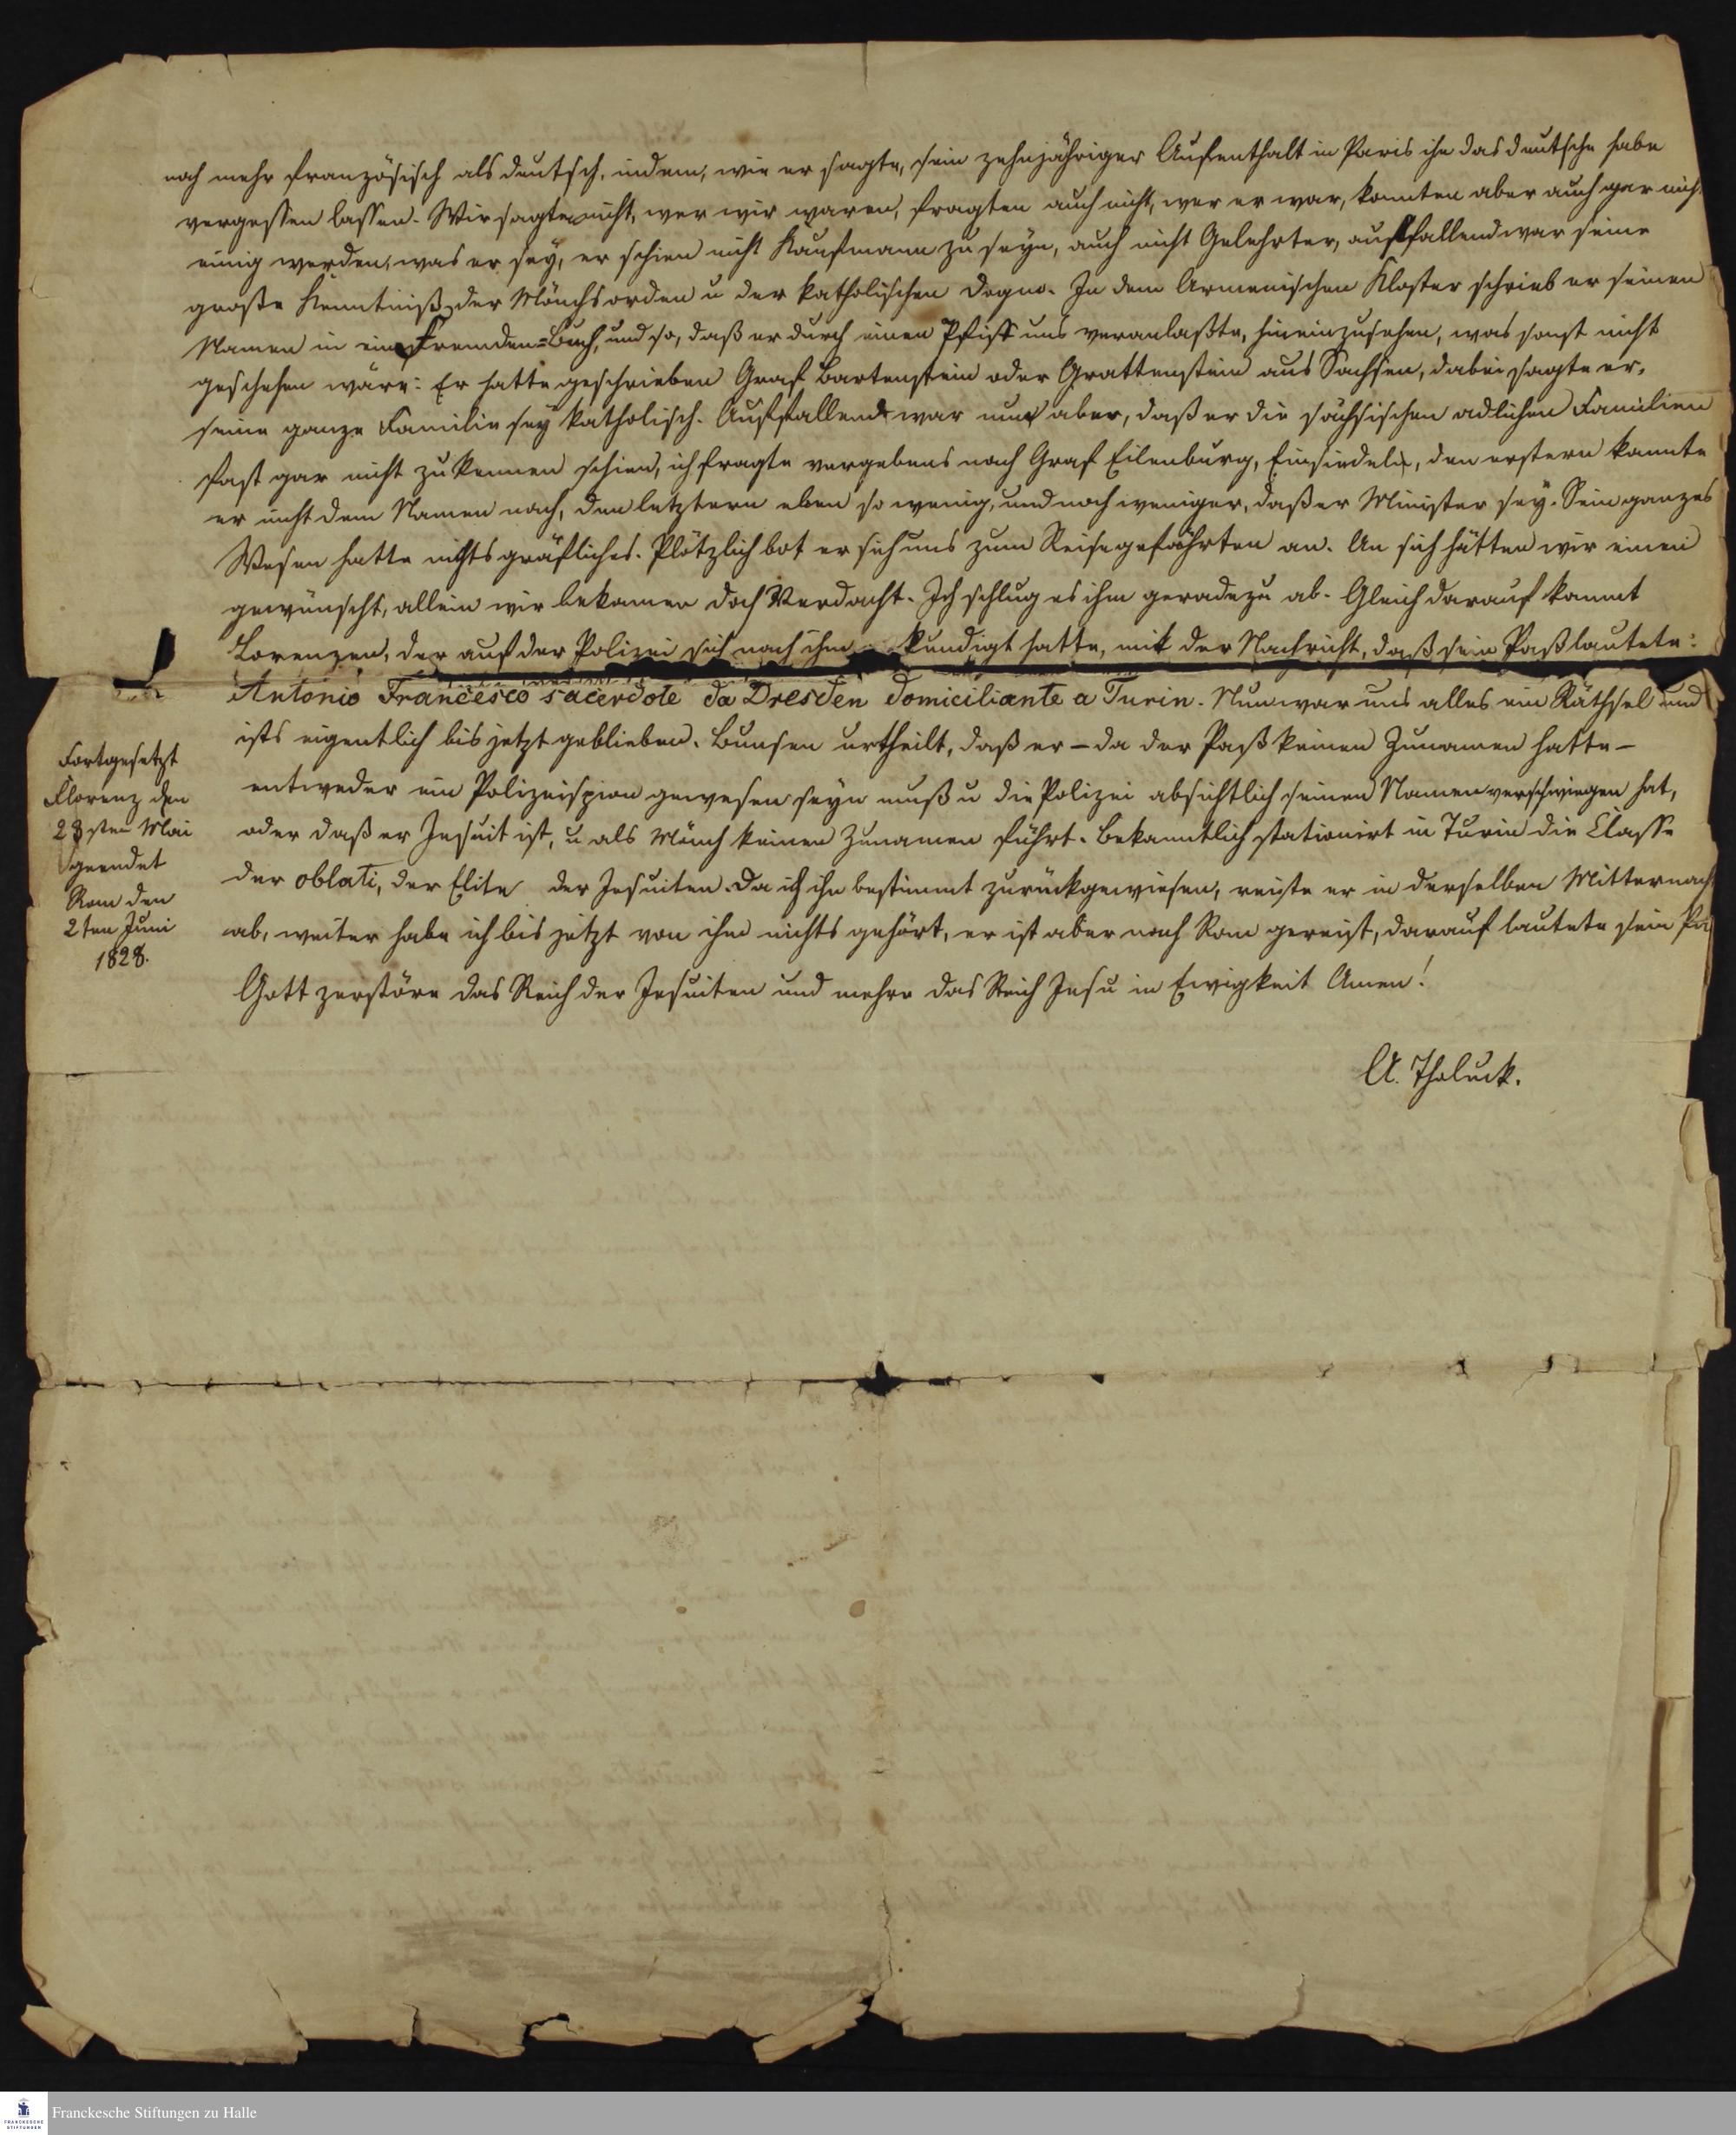 noch mehr französisch als deutsch, indem, wie er sagte, sein zehnjähriger Aufenthalt in Paris ihn das deutsche habe
vergessen lassen. Wir sagten nicht, wer wir waren, fragten auch nicht, wer er war, konnten aber auch gar nich
einig werden, was er sey, er schien nicht Kaufmann zu seyn, auch nicht Gelehrter, auffallend war seine
große Kenntniß der Mönchsorden u der katholischen Dogma. In dem Armenischen Kloster schrieb er seinen
Namen in ein Fremden-Buch, und so, daß er durch einen Pfiff uns veranlaßte, hineinzusehen, was sonst nicht
geschehen wäre: Er hatte geschrieben Graf Bartenstein oder Grattenstein aus Sachsen, dabei sagte er,
seine ganze Familie sey katholisch. Auffallend war nun aber, daß er die sächsischen adlichen Familien
fast gar nicht zu kennen schien, ich fragte vergebens nach Graf Eilenburg, Einsiedel, den erstern kannte
er nicht dem Namen nach, den letztern eben so wenig, und noch weniger, daß er Minister sey. Sein ganzes
Wesen hatte nichts gräfliches. Plötzlich bot er sich uns zum Reisegefährten an. An sich hätten wir einen
gewünscht, allein wir bekamen doch Verdacht. Ich schlug es ihm geradezu ab. Gleich darauf kommt
Lorenzen, der auf der Polizei sich nach ihm kundigt hatte, mit der Nachricht, daß sein Paß lautete:
Antonio Francesco sacerdote da Dresden domiciliante a Turin. Nun war uns alles ein Räthsel und
ists eigentlich bis jetzt geblieben. Bunsen urtheilt, daß er – da der Paß keinen Zunamen hatte –
entweder ein Polizeispion gewesen seyn muß u die Polizei absichtlich seinen Namen verschwiegen hat,
oder daß er Jesuit ist, u als Mönch keinen Zunamen führt. Bekanntlich stationirt in Turin die Classe
der oblati, der Elite der Jesuiten. Da ich ihn bestimmt zurückgewiesen, reiste er in derselben Mitternach
ab, weiter habe ich bis jetzt von ihm nichts gehört, er ist aber nach Rom gereist, darauf lautete sein Pa
Gott zerstöre das Reich der Jesuiten und mehre das Reich Jesu in Ewigkeit Amen!
A. Tholuck.
Fortgesetzt
Florenz den
28sten Mai
geendet
Rom den
2ten Juni
1828.
FRANCKESCHE
STIFTUNGEN
Franckesche Stiftungen zu Halle